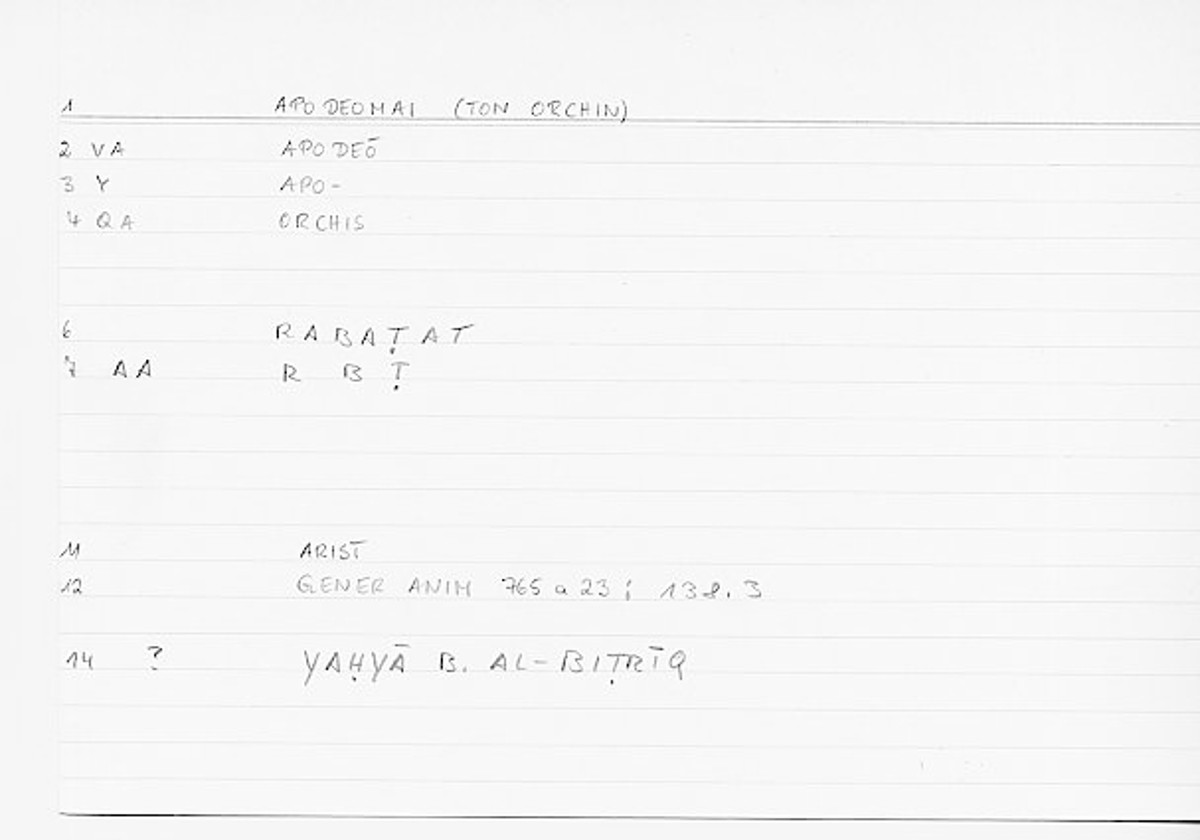 1 APODEOMAI (TON ORCHIN)
2 VA APODEŌ
3 Y APO-
4 QA ORCHIS
6 RABAṬAT
7 AA R B Ṭ
11 ARIST
12 GENER ANIM 765 a 23 ; 138.3
14 ? YAḤYĀ B. AL-BIṬRĪQ